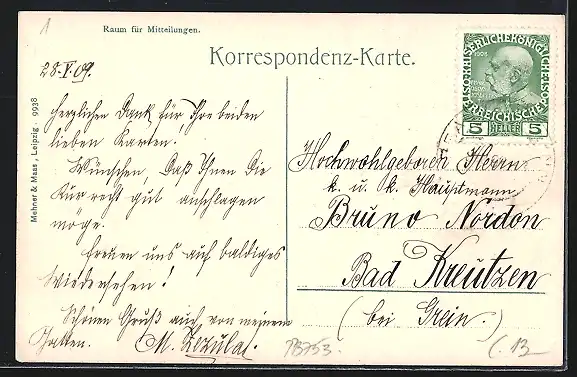 1
Raum für Mitteilungen.
Korrespondenz-Karte.
28.V.09.
Herzlichen Dank für Ihre beiden
lieben Karten!
Wünschen, daß Ihnen die
Kur recht gut anschlagen
möge.
Freuen uns auf baldiges
Wiedersehen!
Schönen Gruß auch von meinem
Gatten.
M. Zezula.
Mehner & Maas, Leipzig. 9938
KAISERLICHE KÖNIGLICHE
ÖSTERREICHISCHE
5 HELLER 5
Hochwohlgeboren Herrn
k. u. k. Hauptmann
Bruno Nordon
Bad Kreutzen
(bei Grein.)